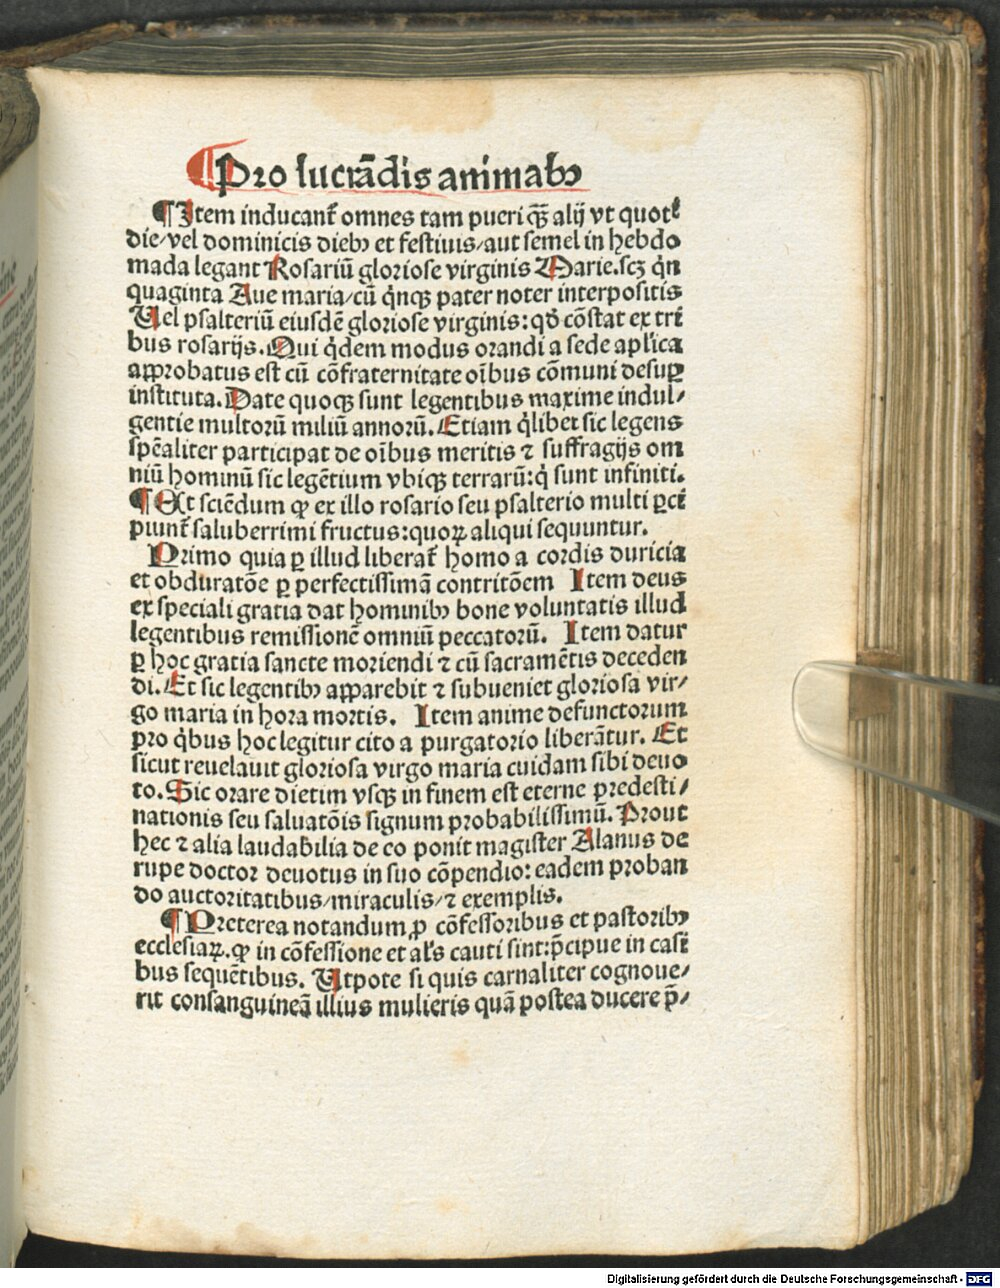 ¶ Pro lucrādis animabꝫ
¶ Item inducant᷑ omnes tam pueri qꝫ̄ alij vt quotͭ
die/vel dominicis diebꝫ et festiuis/aut semel in hebdo
mada legant Rosariū gloriose virginis Marie.scꝫ qͥn
quaginta Aue maria/cū qͥnqꝫ pater noter interpositis
Uel psalteriū eiusdē gloriose virginis: qđ cōstat ex tri
bus rosarijs. Qui qͥdem modus orandi a sede apl'ica
approbatus est cū cōfraternitate oībus cōmuni desuꝑ
instituta. Date quoqꝫ sunt legentibus maxime indul/
gentie multorū miliū annorū. Etiam qͥlibet sic legens
spēaliter participat de oībus meritis ⁊ suffragijs om
niū hominū sic legētium vbiqꝫ terrarū: qͥ sunt infiniti.
¶ Et sciēdum ꝙ ex illo rosario seu psalterio multi ꝑci
piunt᷑ saluberrimi fructus: quoꝝ aliqui sequuntur.
Primo quia ꝑ illud liberat᷑ homo a cordis duricia
et obduratōe ꝑ perfectissimā contritōem Item deus
ex speciali gratia dat hominibꝫ bone voluntatis illud
legentibus remissionē omniū peccatorū. Item datur
ꝑ hoc gratia sancte moriendi ⁊ cū sacramētis deceden
di. Et sic legentibꝫ apparebit ⁊ subueniet gloriosa vir/
go maria in hora mortis. Item anime defunctorum
pro qͥbus hoc legitur cito a purgatorio liberātur. Et
sicut reuelauit gloriosa virgo maria cuidam sibi deuo
to. Sic orare dietim vsqꝫ in finem est eterne predesti/
nationis seu saluatōis signum probabilissimū. Prout
hec ⁊ alia laudabilia de eo ponit magister Alanus de
rupe doctor deuotus in suo cōpendio: eadem proban
do auctoritatibus/miraculis/⁊ exemplis.
¶ Preterea notandum ꝓ cōfessoribus et pastoribꝫ
ecclesiaꝝ. ꝙ in cōfessione et al's cauti sint: p̄cipue in casi
bus sequētibus. Utpote si quis carnaliter cognoue/
rit consanguineā illius mulieris quā postea ducere p̄/
Digitalisierung gefördert durch die Deutsche Forschungsgemeinschaft - DFG